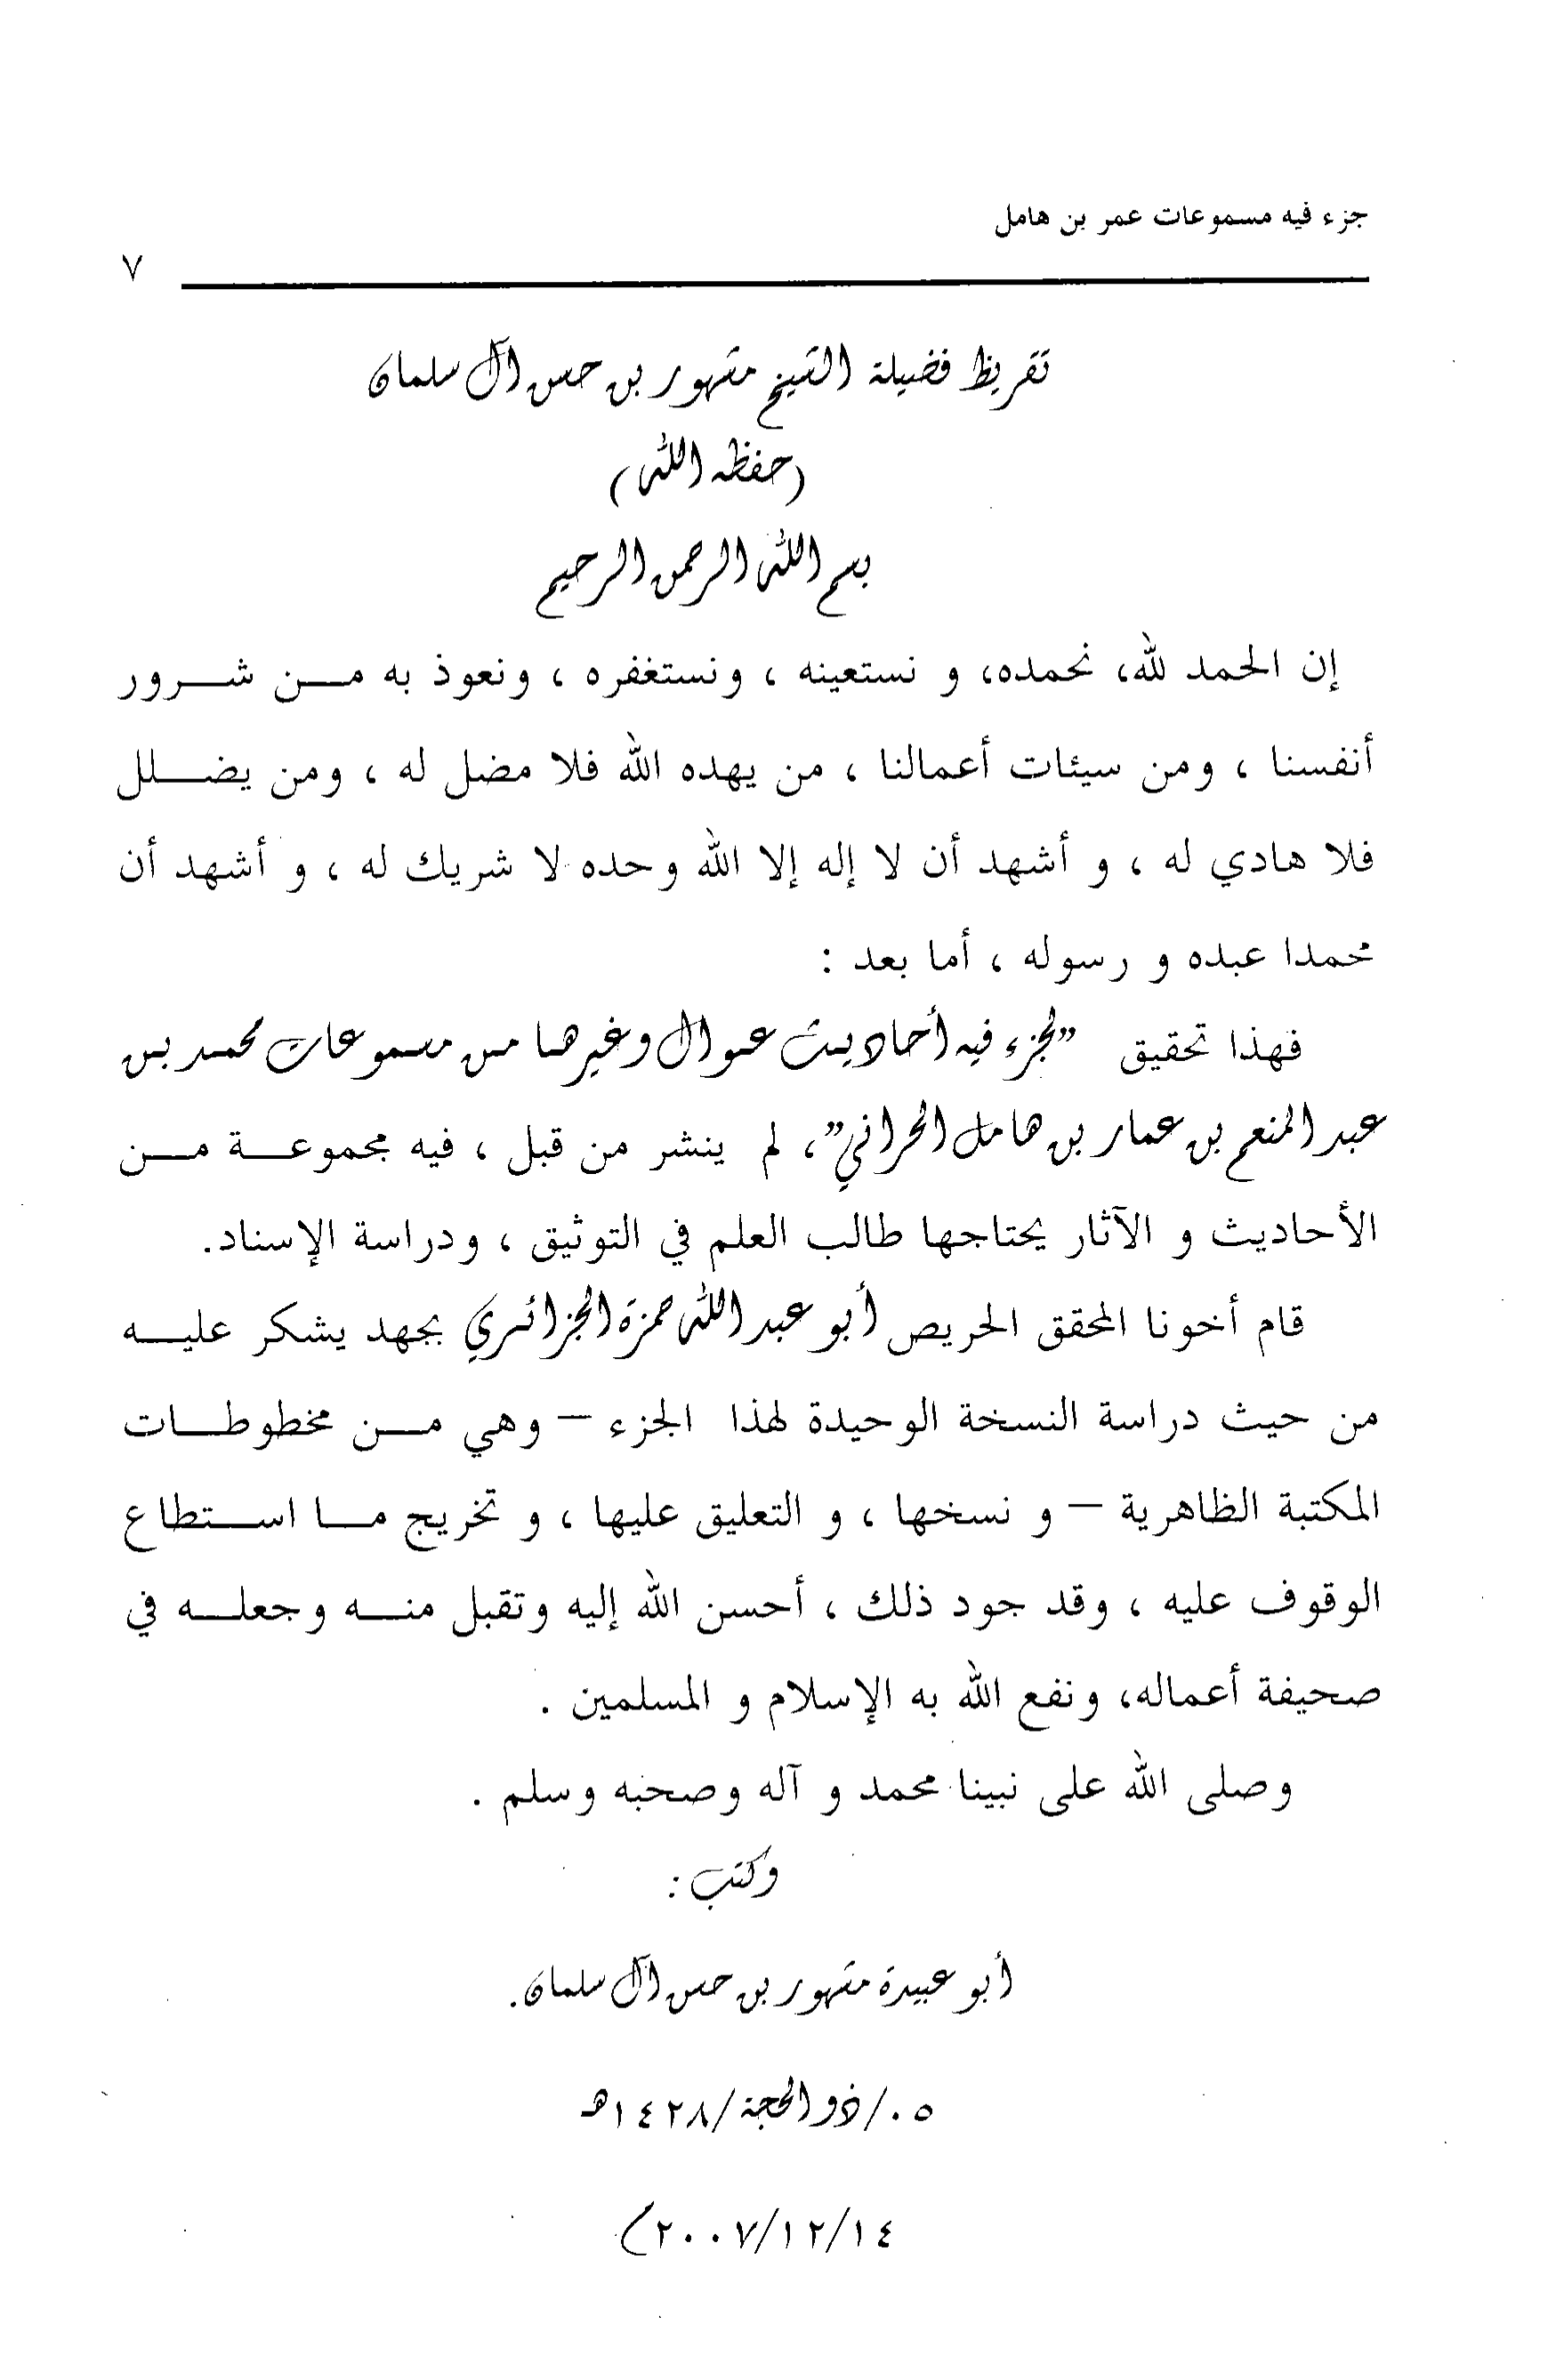 جزء فيه مسموعات عمر بن هامل
٧
تقريظ فضيلة الشيخ مشهور بن حسن آل سلمان
(حفظه الله)
بسم الله الرحمن الرحيم
إن الحمد لله، نحمده، و نستعينه ، ونستغفره ، ونعوذ به من شرور
أنفسنا ، ومن سيئات أعمالنا ، من يهده الله فلا مضل له ، ومن يضلل
فلا هادي له ، و أشهد أن لا إله إلا الله وحده لا شريك له ، و أشهد أن
محمدا عبده و رسوله ، أما بعد :
فهذا تحقيق "لجزء فيه أحاديث عوال وغيرها من مسموعات محمد بن
عبد المنعم بن عمار بن هامل الحراني"، لم ينشر من قبل ، فيه مجموعة من
الأحاديث و الآثار يحتاجها طالب العلم في التوثيق ، ودراسة الإسناد.
قام أخونا المحقق الحريص أبو عبد الله حمزة الجزائري بجهد يشكر عليه
من حيث دراسة النسخة الوحيدة لهذا الجزء – وهي من مخطوطات
المكتبة الظاهرية – و نسخها ، و التعليق عليها ، و تخريج ما استطاع
الوقوف عليه ، وقد جود ذلك ، أحسن الله إليه وتقبل منه وجعله في
صحيفة أعماله، ونفع الله به الإسلام و المسلمين .
وصلى الله على نبينا محمد و آله وصحبه وسلم .
وكتب:
أبو عبيدة مشهور بن حسن آل سلمان.
٠٥/ذو الحجة/١٤٢٨هـ
٢٠٠٧/١٢/١٤)